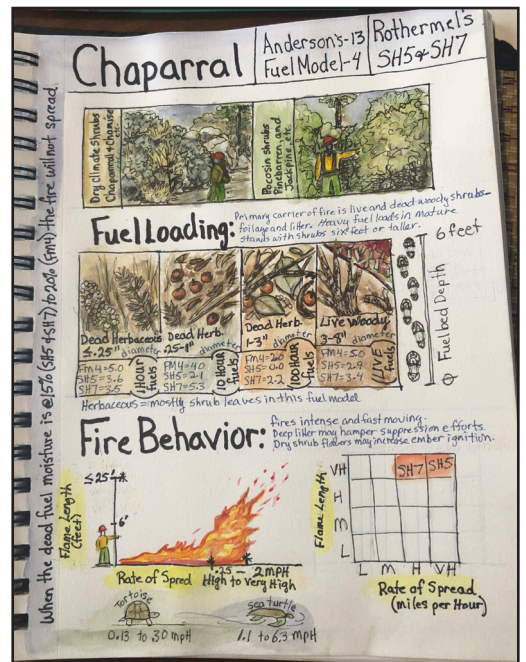 When the dead fuel moisture is @15% (SH5 & SH7) to 20% (FM4) the fire will not spread.
Chaparral
Anderson's-13
Fuel Model-4
Rothermel's
SH5 & SH7
Dry climate shrubs
Chaparral & Chamise
etc.
Pocosin shrubs
Pinebarren and
Jackpine, etc.
Fuel Loading:
Primary carrier of fire is live and dead woody shrubs-
foliage and litter. Heavy fuel loads in mature
stands with shrubs six feet or taller.
Dead Herbaceous
≤.25" diameter
FM4=5.0
SH5=3.6
SH7=3.5
1 HOUR
fuels
Dead Herb.
.25-1" diameter
FM4=4.0
SH5=2.1
SH7=5.3
10 HOUR
fuels
Dead Herb.
1-3" diameter
FM4=2.0
SH5=0.0
SH7=2.2
100 HOUR
fuels
Live Woody
3-8" diameter
FM4=5.0
SH5=2.9
SH7=3.4
LIVE
fuels
6 feet
Fuelbed Depth
Herbaceous = mostly shrub leaves in this fuel model
Fire Behavior:
fires intense and fast moving.
Deep litter may hamper suppression efforts.
Dry shrub flowers may increase ember ignition.
Flame Length
(feet)
≤25'
6'
Rate of Spred
.25 - 2 MPH
High to Very High
Tortoise
0.13 to 30 mpH
sea turtle
1.1 to 6.3 mpH
Flame Length
VH
H
M
L
SH7
SH5
L M H VH
Rate of Spread
(miles per Hour)